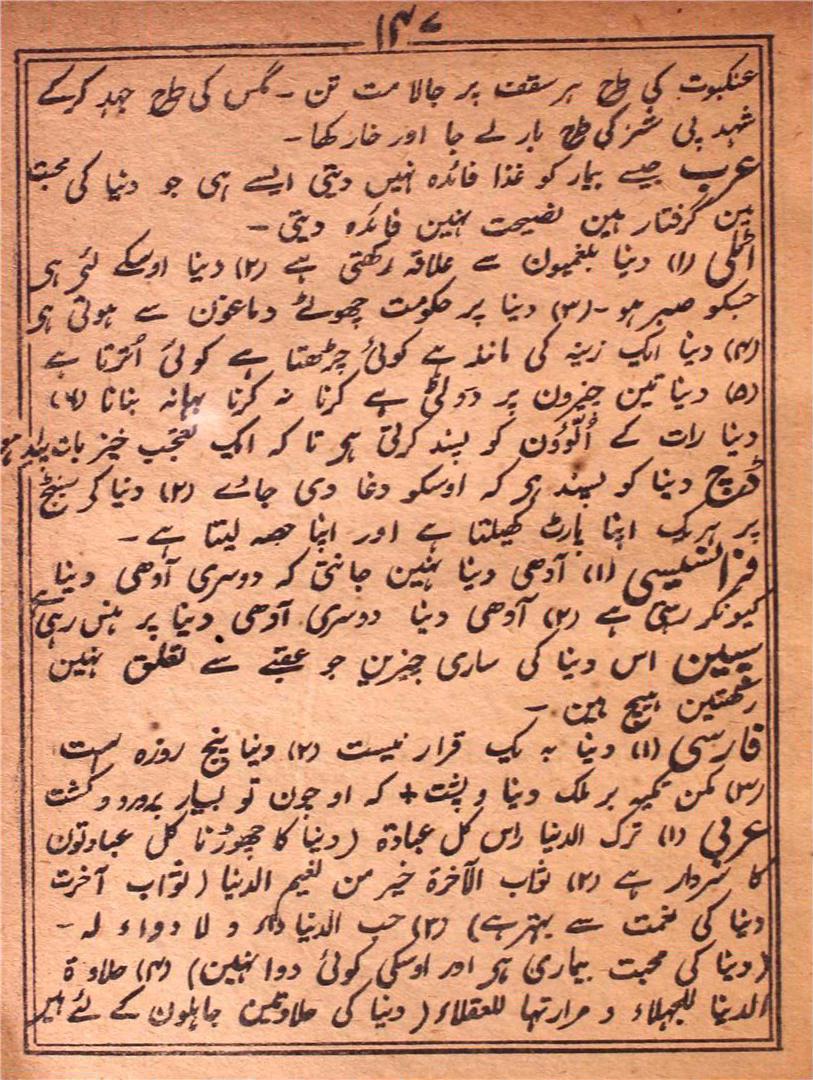 ۱۴۷
عنکبوت کی طرح ہر سقف پر جالا مت تن ۔ مگس کی طرح جہد کر کے
شہد پی شتر کی طرح بار لے جا اور خار کھا ۔
عرب جیسے بیمار کو غذا فائدہ نہیں دیتی ایسے ہی جو دنیا کی محبت
مین گرفتار ہین نصیحت نہین فائدہ دیتی ۔
اٹلی (۱) دنیا بلغمیون سے علاقہ رکھتی ہے (۲) دنیا اوسکے لئے ہی
جسکو صبر ہو ۔ (۳) دنیا پر حکومت چھوٹے دماغون سے ہوتی ہی
(۴) دنیا ایک زینہ کی مانند ہے کوئی چڑھتا ہے کوئی اُترتا ہے
(۵) دنیا تین چیزون پر دولتی ہے کرنا نہ کرنا بہانہ بنانا (۶)
دنیا رات کے اُلّوؤن کو پسند کرتی ہی تا کہ ایک تعجب خیز بات پیدا ہو
ڈچ دنیا کو پسند ہی کہ اوسکو دغا دی جائے (۲) دنیا کے سٹیج
پر ہر یک اپنا پارٹ کھیلتا ہے اور اپنا حصہ لیتا ہے ۔
فرانسیسی (۱) آدھی دنیا نہین جانتی کہ دوسری آدھی دنیا
کیونکر رہتی ہے (۲) آدھی دنیا دوسری آدھی دنیا پر ہنس رہی ہے
سپین اس دنیا کی ساری چیزین جو عقبے سے تعلق نہین
رکھتین ہیچ ہین ۔
فارسی (۱) دنیا بہ یک قرار نیست (۲) دنیا پنج روزہ است
(۳) مکن تکیہ بر ملک دنیا و پشت + کہ او چون تو بسیار پرورد و کشت
عربی (۱) ترک الدنیا راس کل عبادۃ (دنیا کا چھوڑنا کل عبادتون
کا سردار ہے (۲) ثواب الآخرۃ خیر من نعیم الدنیا (ثواب آخرت
دنیا کی نعمت سے بہتر ہے) (۳) حب الدنیا داء و لا دواء لہ ۔
(دنیا کی محبت بیماری ہی اور اوسکی کوئی دوا نہین) (۴) حلاوۃ
الدنیا للجہلاء و مرارتہا للعقلاء (دنیا کی حلاوتین جاہلون کے لئے ہیں